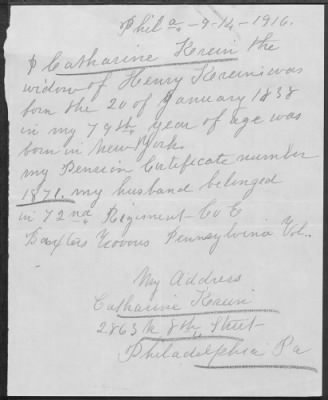 Phila. - 9-14-1916.
I Catharine Krein the
widow of Henry Krein was
born the 20 of January 1838
in my 79th year of age was
born in New-York.
my Pension Certificate number
1871. my husband belonged
in 72nd Regiment - Co E
Baxters Zouous Pennsylvina Vol..
My Address
Catharine Krein
2863 N 8th Street
Philadelphia Pa